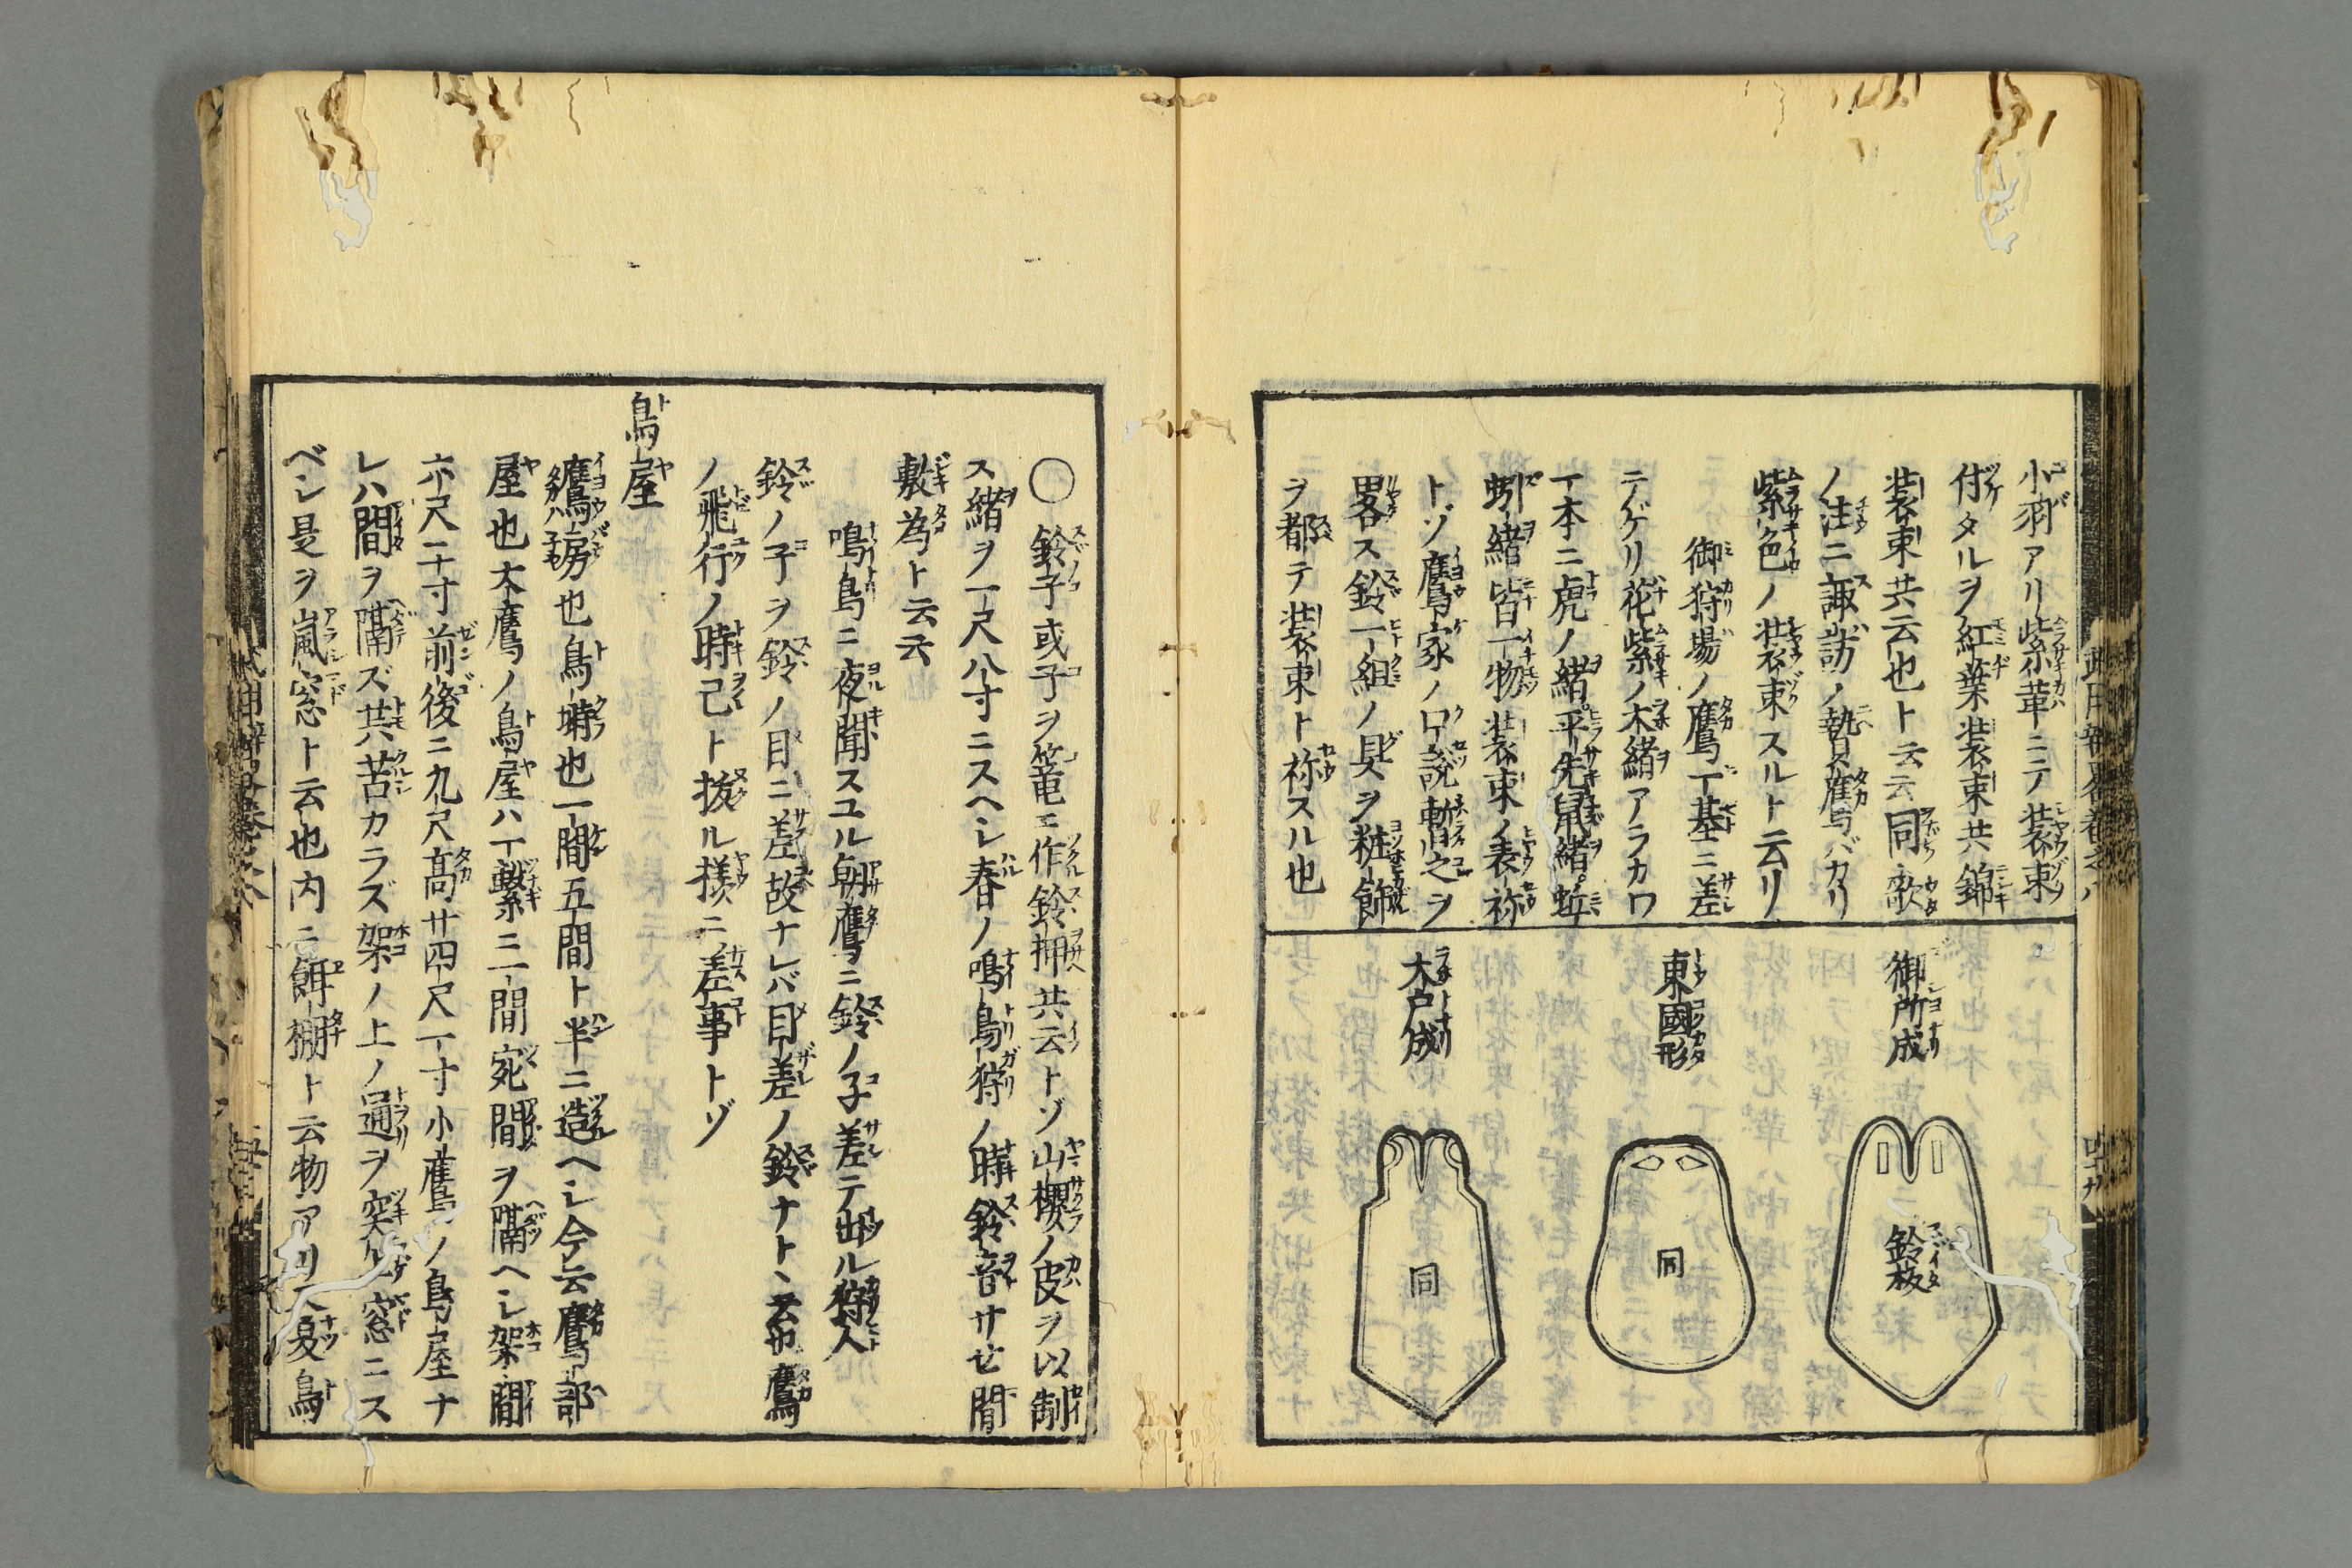 小羽アリ紫革ニテ装束
付タルヲ紅葉装束共錦
装束共云也ト云云同歌
ノ注ニ諏訪ノ贄鷹バカリ
紫色ノ装束スルト云リ
御狩場ノ鷹一基ニ差
テゲリ花紫ノ大緒アラカワ
一本ニ虎ノ緒平先鼠緒蚯
蚓緒皆一物装束ノ表祢
トゾ鷹家ノ口説暫之ヲ
畧ス鈴一組ノ具ヲ粧飾
ヲ都テ装束ト祢スル也
御所成
鈴板
東國形
同
大戸成
同
〇鈴子或子ヲ篭エ作鈴押共云トゾ山櫻ノ皮ヲ以制
ス緒ヲ一尺八寸ニスヘシ春ノ鳴鳥狩ノ時鈴音サセ間
敷為ト云云
鳴鳥ニ夜聞スユル朝鷹ニ鈴ノ子差テ出ル狩人
鈴ノ子ヲ鈴ノ目ニ差故ナレバ目差ノ鈴ナト云也鷹
ノ飛行ノ時己ト拔ル様ニ差事トゾ
鳥屋
鷹房也鳥塒也一間五間ト半ニ造ヘシ今云鷹部
屋也大鷹ノ鳥屋ハ一繋ニ一間宛間ヲ隔ヘシ架間
六尺二寸前後ニ九尺高サ四尺一寸小鷹ノ鳥屋ナ
レハ間ヲ隔ズ共苦カラズ架ノ上ノ通ヲ突上窓ニス
ベシ是ヲ嵐窓ト云也内ニ餌棚ト云物アリ又夏鳥